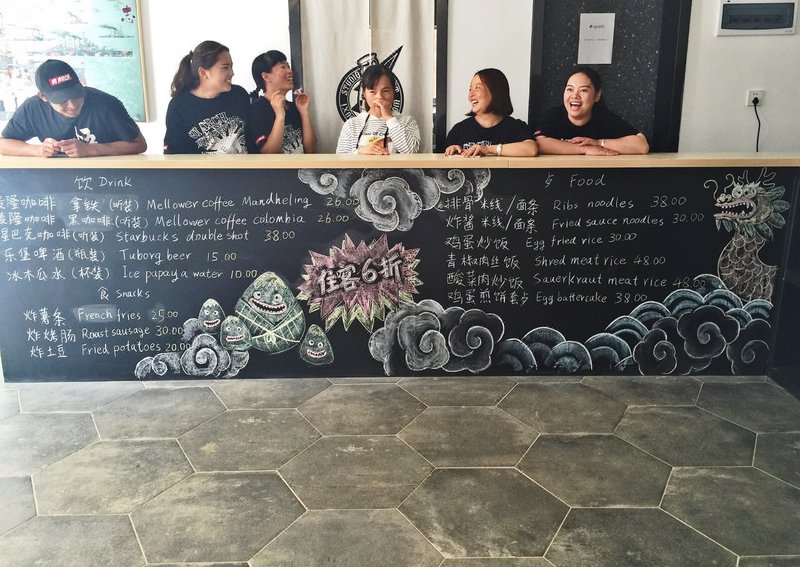 饮 Drink
隆咖啡 拿铁 (听装) Mellower coffee Mandheling 26.00
隆咖啡 黑咖啡 (听装) Mellower coffee colombia 26.00
星巴克咖啡 (听装) Starbucks doubleshot 38.00
乐堡啤酒 (瓶装) Tuborg beer 15.00
冰木瓜水 (杯装) Ice papaya water 10.00
食 Snacks
炸薯条 French fries 25.00
炸烤肠 Roast sausage 30.00
炸土豆 Fried potatoes 20.00
住客6折
Food
排骨米线/面条 Ribs noodles 38.00
炸酱米线/面条 Fried sauce noodles 30.00
鸡蛋炒饭 Egg fried rice 30.00
青椒肉丝饭 Shred meat rice 48.00
酸菜肉炒饭 Sauerkraut meat rice 48.00
鸡蛋煎饼套 Egg battercake 38.00